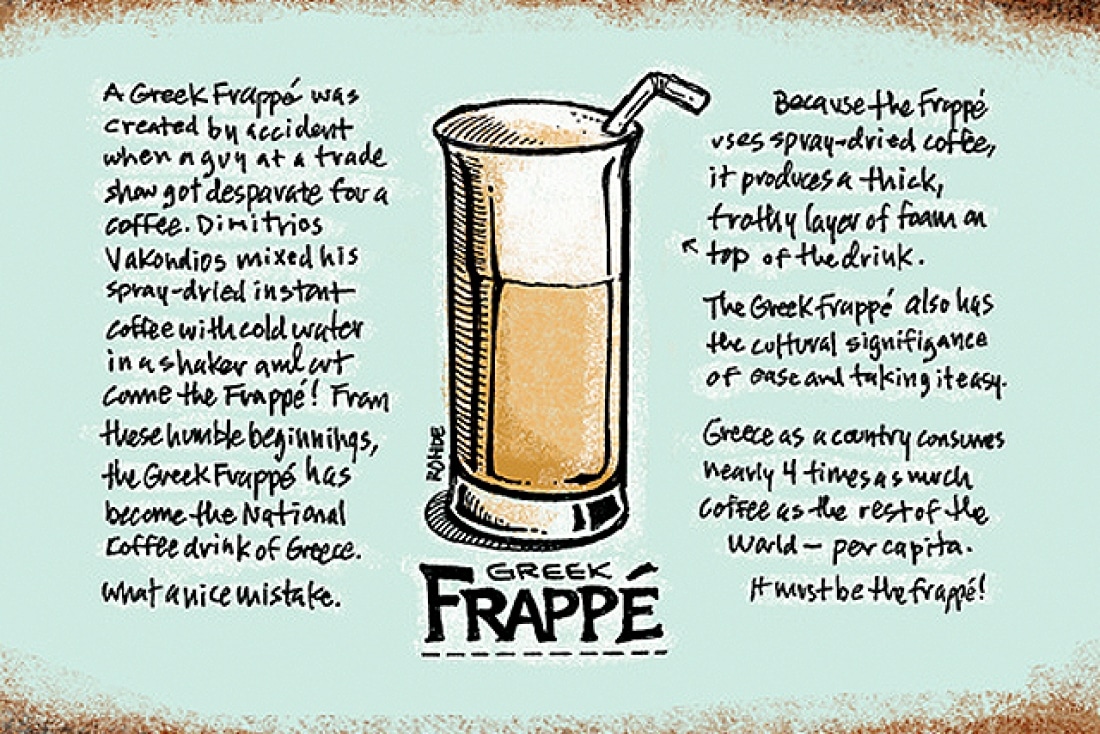 A Greek Frappé was
created by accident
when a guy at a trade
show got desparate for a
coffee. Dimitrios
Vakondios mixed his
spray-dried instant
coffee with cold water
in a shaker and out
come the Frappé! From
these humble beginnings,
the Greek Frappé has
become the National
Coffee drink of Greece.
What a nice mistake.
ROHDE
GREEK
FRAPPÉ
Because the Frappé
uses spray-dried coffee,
it produces a thick,
frothy layer of foam on
top of the drink.
The Greek Frappé also has
the cultural signifigance
of ease and taking it easy.
Greece as a country consumes
nearly 4 times as much
coffee as the rest of the
World – per capita.
It must be the frappé!